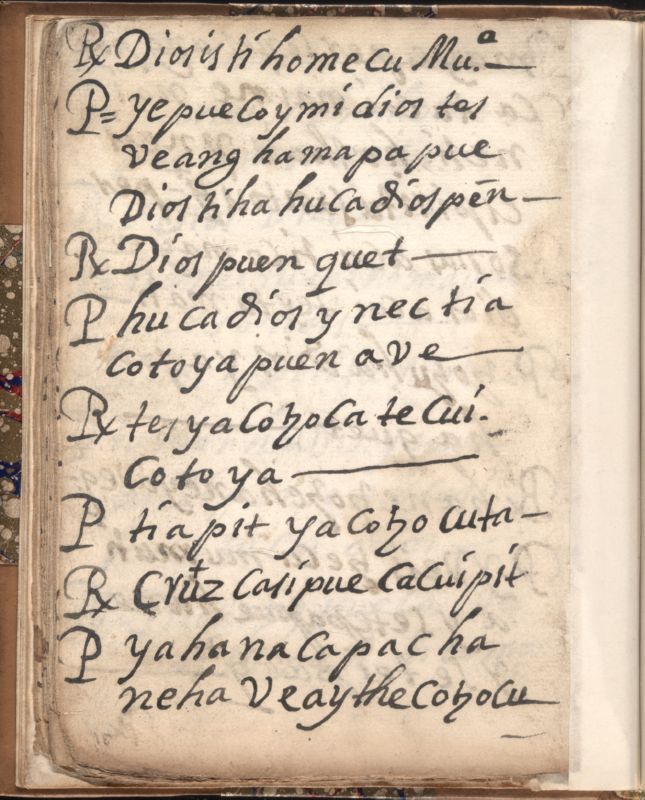 ℞ Dios is ti home cu Mu.ª —
P= ye pue Coy mi dios tes
ve ang ha ma pa pue
Dios ti ha hu ca dios pēn —
℞ Dios puen quet —
P hu ca dios y nec tia
co to ya puen a ve —
℞ tes ya Cozo Ca te Cui.
Co to ya —
P tia pit ya cozo cuta —
℞ Cruz Casi pue Ca Cui pit
P ya ha na Ca pa c ha
ne ha Ve ay the Cozo Cu —